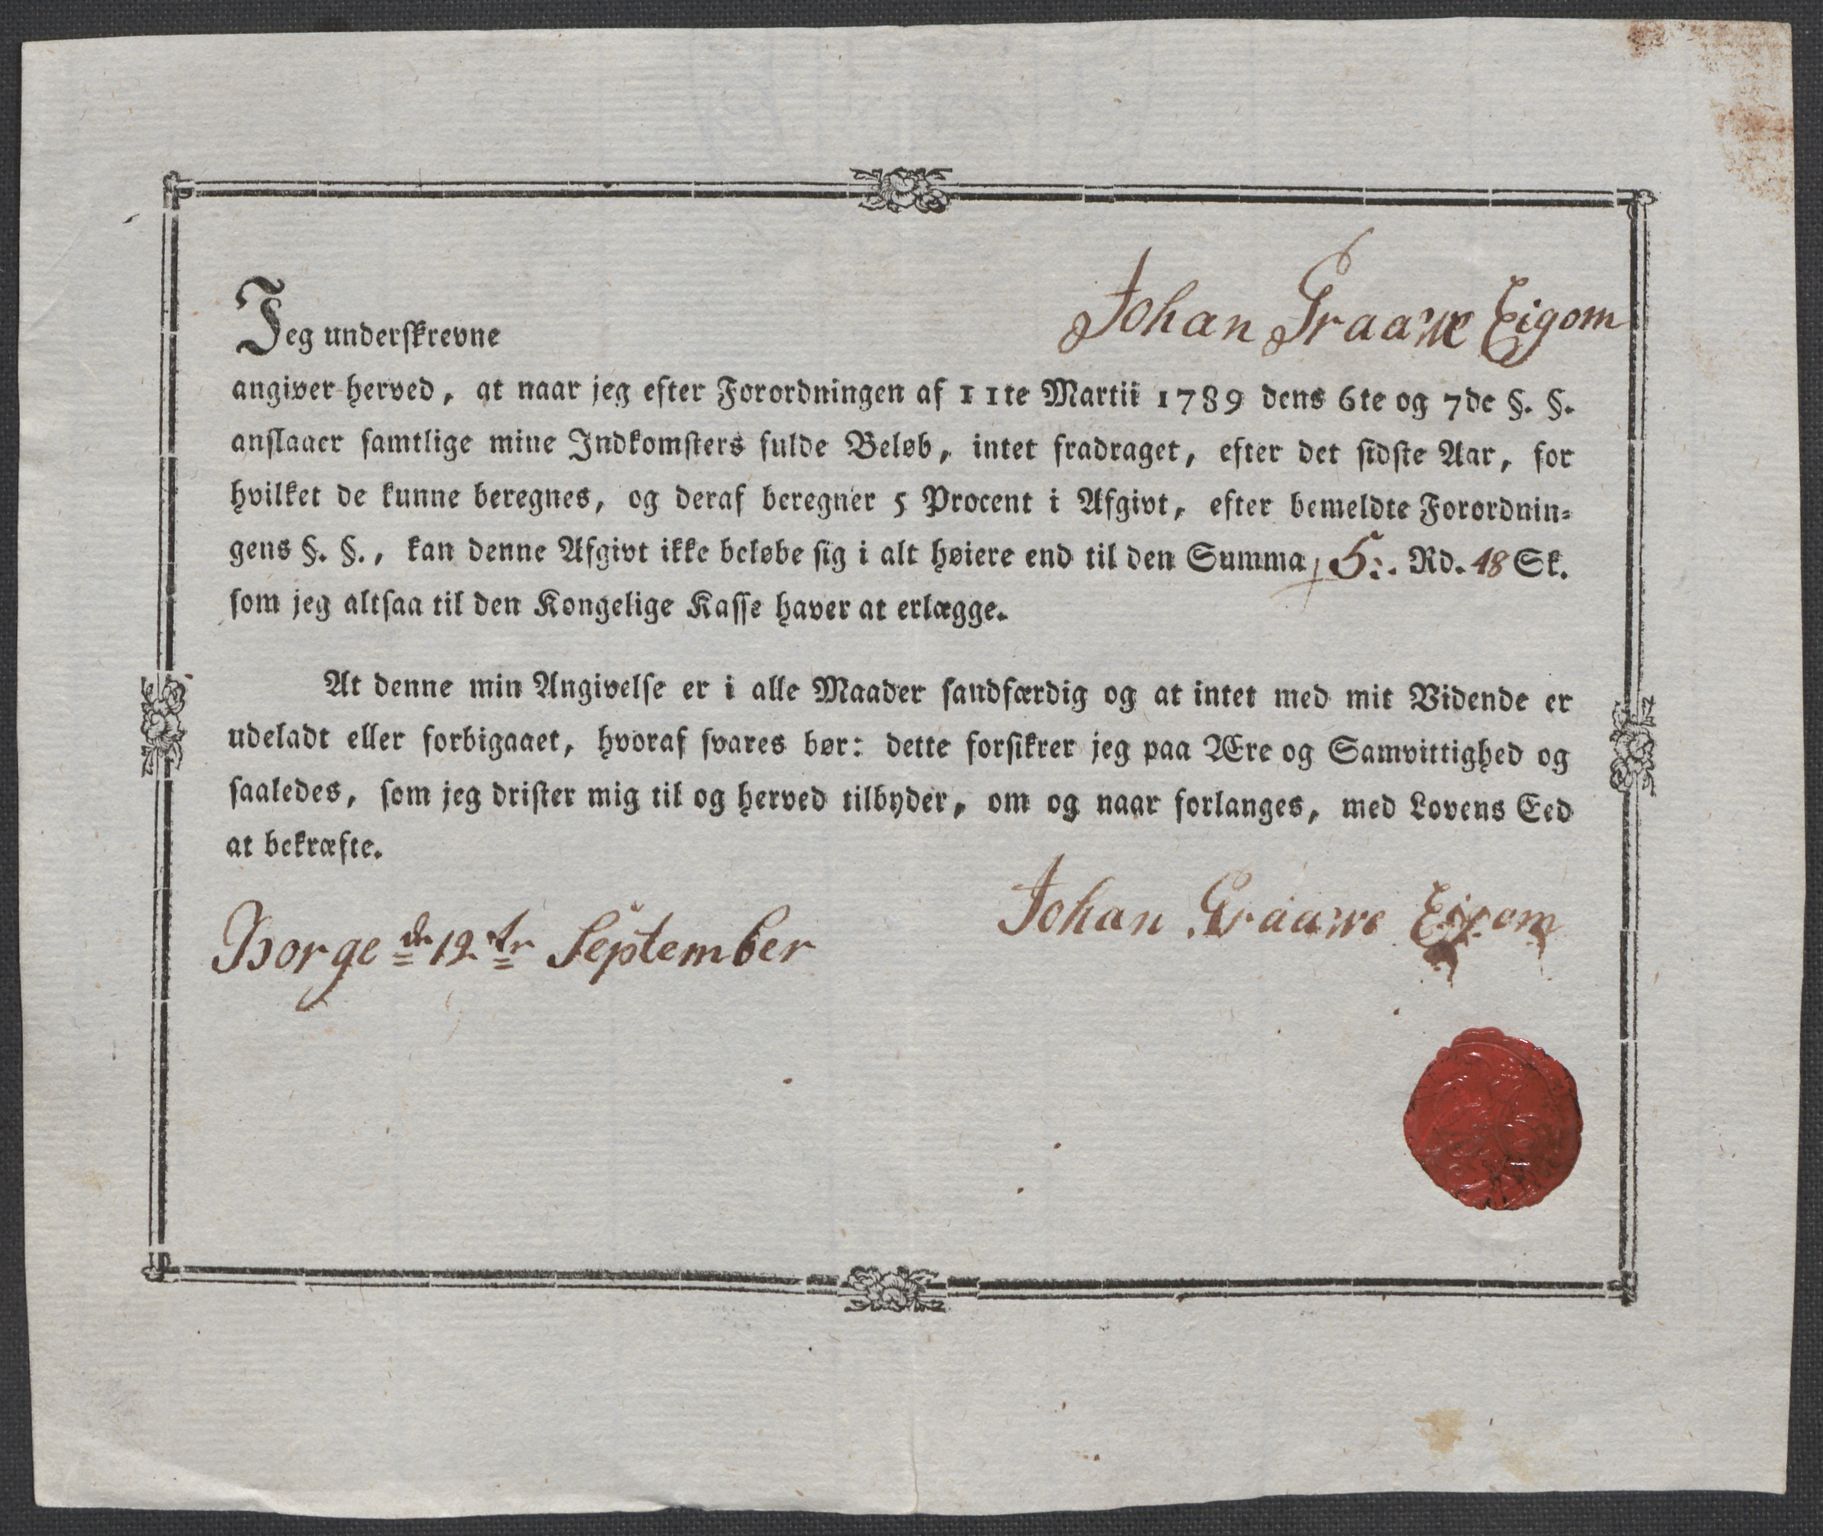 Jeg underskrevne Johan Graawe Eigom
angiver herved, at naar jeg efter Forordningen af 11te Martii 1789 dens 6te og 7de §. §.
anslaaer samtlige mine Indkomsters fulde Beløb, intet fradraget, efter det sidste Aar, for
hvilket de kunne beregnes, og deraf beregner 5 Procent i Afgivt, efter bemeldte Forordnin-
gens §. §., kan denne Afgivt ikke beløbe sig i alt høiere end til den Summa 5:. Rd. 48 Sk.
som jeg altsaa til den Kongelige Kasse haver at erlægge.
At denne min Angivelse er i alle Maader sandfærdig og at intet med mit Vidende er
udeladt eller forbigaaet, hvoraf svares bør: dette forsikrer jeg paa Ære og Samvittighed og
saaledes, som jeg drister mig til og herved tilbyder, om og naar forlanges, med Lovens Eed
at bekræfte.
Johan Graawe Eigom
Borge de 12te September